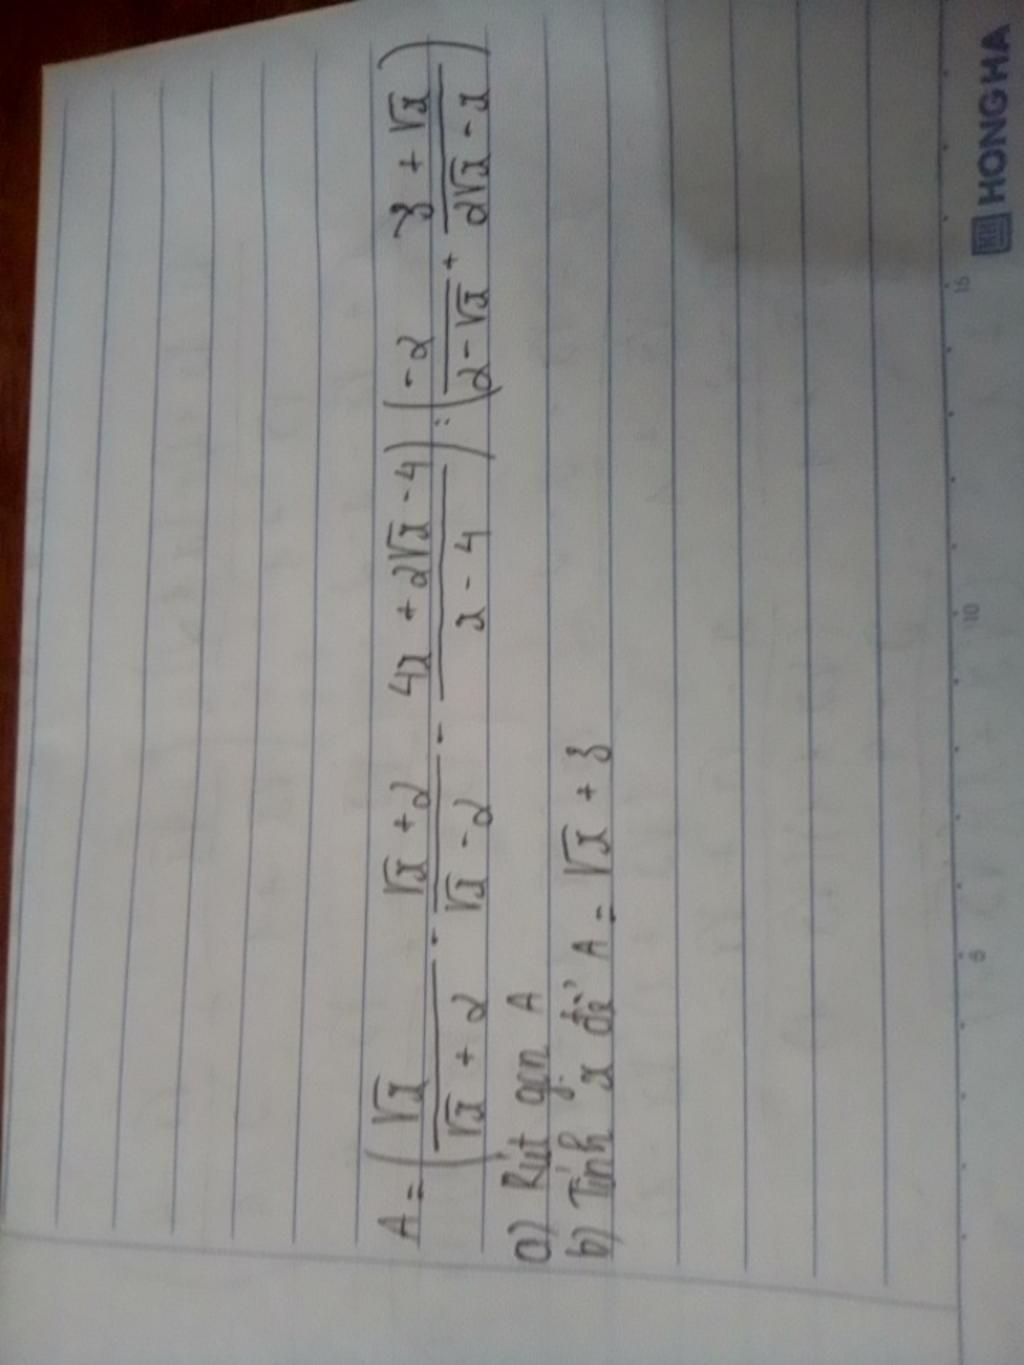 A = (√x / (√x + 2) - (√x + 2) / (√x - 2) - (4x + 2√x - 4) / (x - 4)) : (-2 / (2 - √x) + (3 + √x) / (2√x - x))
a) Rút gọn A
b) Tính x để A = √x + 3
5 10 15
HONG HA